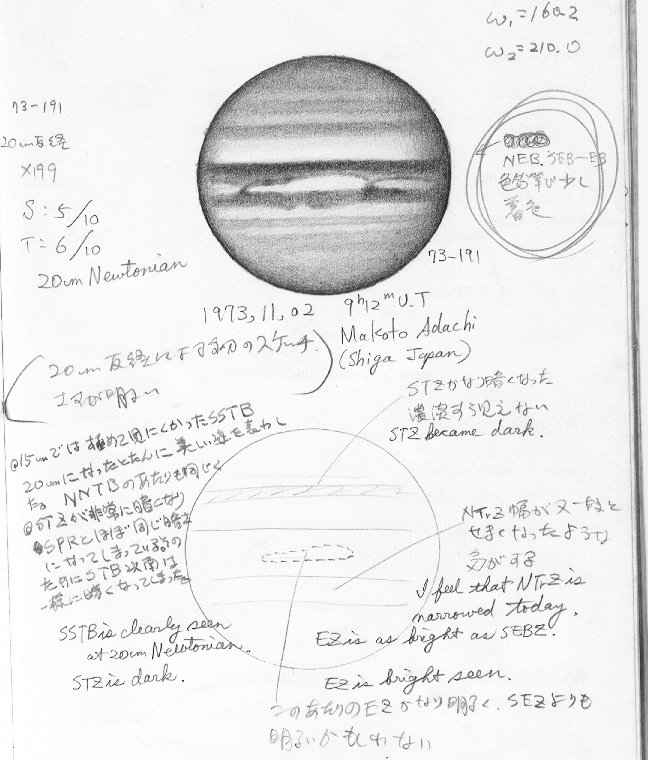 ω₁=160.2
ω₂=210.0
73-191
20cm反経
×199
S:5/10
T=6/10
20cm Newtonian
NEB.SEB~EB
色鉛筆で少し
着色
73-191
1973,11,02 9ʰ12ᵐU.T
Makoto Adachi
(Shiga Japan)
20cm反経による初のスケッチ.
STZがなり暗くなった
濃淡すら見えない
STZ became dark.
@15cmでは極めて見にくかったSSTB
20cmになったとたんに美しい姿を表わし
た。NNTBのあたりも同じく
@STZが非常に暗くなり
SPRとほぼ同じ暗さ
になってしまっている
ためにSTB以南は
一様に暗くなってしまった
NTrZ幅が又一段と
せまくなったような
気がする
I feel that NTrZ is
narrowed today.
EZ is as bright as SEBZ.
SSTB is clearly seen
at 20cm Newtonian.
STZ is dark.
EZ is bright seen.
このあたりのEZがなり明るく、SEZよりも
明るいかもしれない